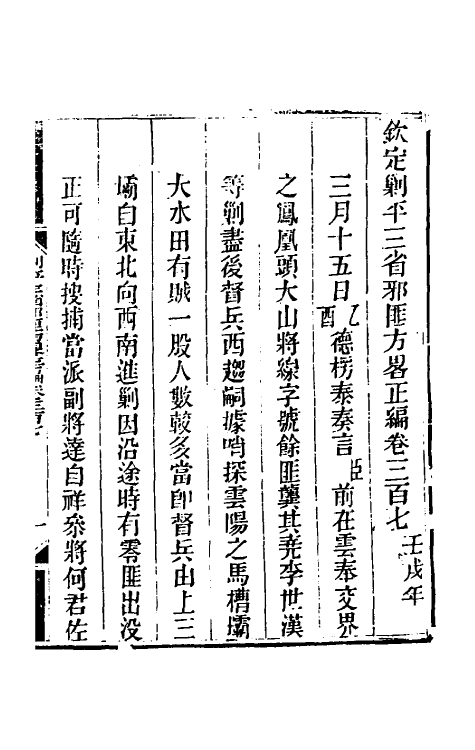 欽定剿平三省邪匪方畧正編卷三百七 壬戌年
三月十五日乙酉德楞泰奏言臣前在雲奉交界
之鳳凰頭大山將線字號餘匪龔其堯李世漢
等剿盡後督兵西趨嗣據哨探雲陽之馬槽壩
大水田有賊一股人數較多當即督兵由上三
壩自東北向西南進剿因沿途時有零匪出没
正可隨時搜捕當派副將達自祥叅將何君佐